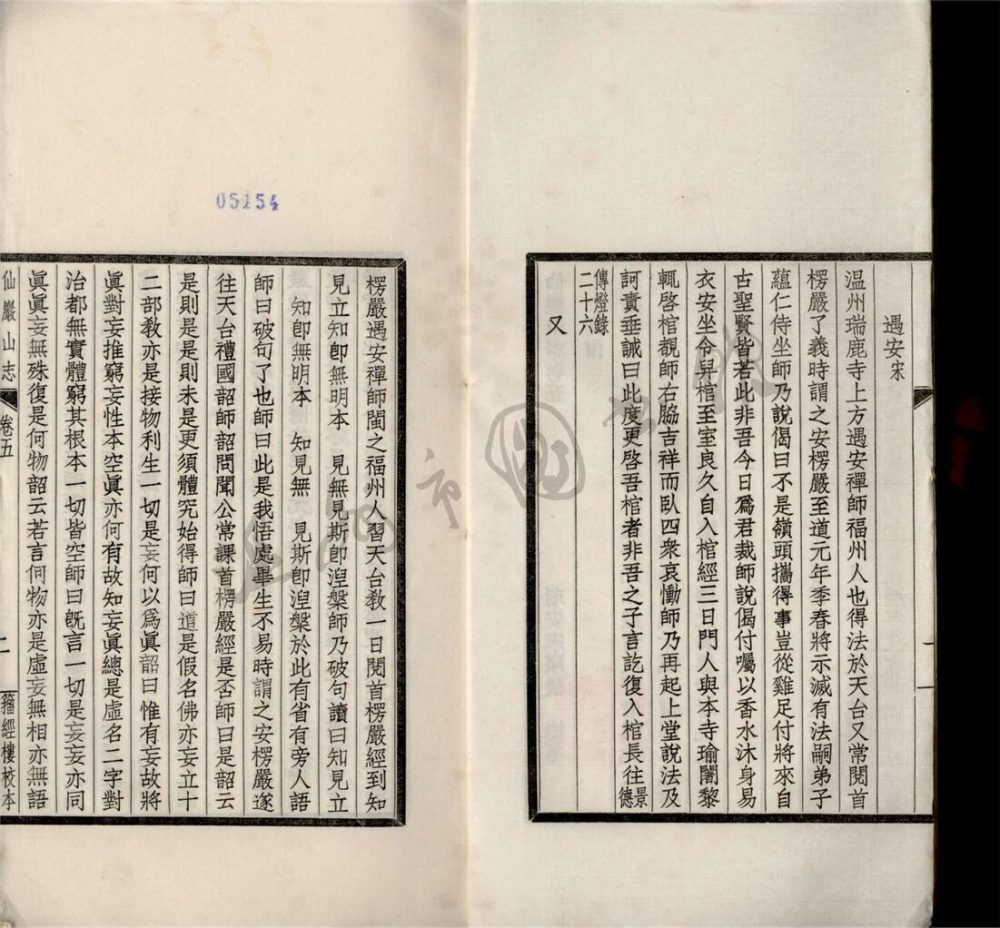 遇安宋
温州瑞鹿寺上方遇安禪師福州人也得法於天台又常閱首
楞嚴了義時謂之安楞嚴至道元年季春將示滅有法嗣弟子
蘊仁侍坐師乃說偈曰不是嶺頭攜得事豈從雞足付將來自
古聖賢皆若此非吾今日爲君裁師說偈付囑以香水沐身易
衣安坐令舁棺至室良久自入棺經三日門人與本寺瑜闍黎
輒啓棺覩師右脇吉祥而臥四衆哀慟師乃再起上堂說法及
訶責垂誡曰此度更啓吾棺者非吾之子言訖復入棺長往景德
傳燈錄
二十六
又
05154
楞嚴遇安禪師閩之福州人習天台敎一日閱首楞嚴經到知
見立知卽無明本 見無見斯卽湼槃師乃破句讀曰知見立
知卽無明本 知見無 見斯卽湼槃於此有省有旁人語
師曰破句了也師曰此是我悟處畢生不易時謂之安楞嚴遂
往天台禮國韶師韶問聞公常課首楞嚴經是否師曰是韶云
是則是是則未是更須體究始得師曰道是假名佛亦妄立十
二部敎亦是接物利生一切是妄何以爲眞韶曰惟有妄故將
眞對妄推窮妄性本空眞亦何有故知妄眞總是虛名二字對
治都無實體窮其根本一切皆空師曰旣言一切是妄妄亦同
眞眞妄無殊復是何物韶云若言何物亦是虛妄無相亦無語
仙巖山志 卷五 二 籀經樓校本